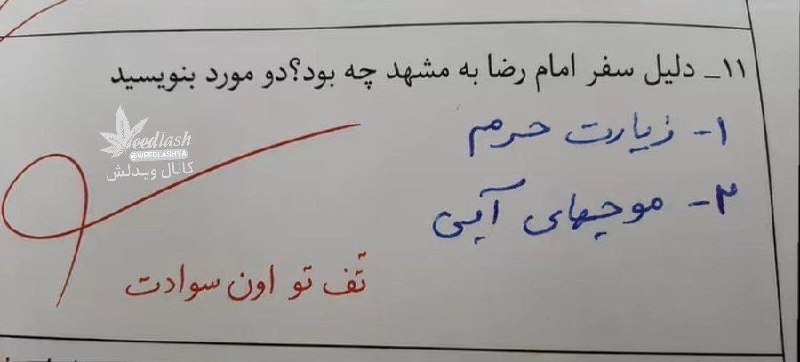 ۱۱_ دلیل سفر امام رضا به مشهد چه بود؟دو مورد بنویسید
۱- زیارت حرم
۲- موجهای آبی
تُف تو اون سوادت
Weedlash
@WEEDLASHYA
کانال ویدلش